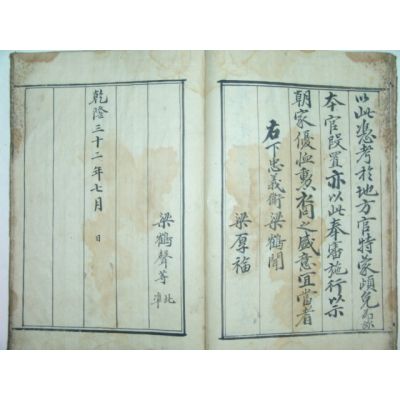 以此憑考於地方官特蒙頉免爲旀
本官段置亦以此奉審施行以示
朝家優恤勲裔之盛意宜當者
右下忠義衛梁鶴聞
梁厚福
梁鶴聲等
此準
乾隆三十二年七月 日